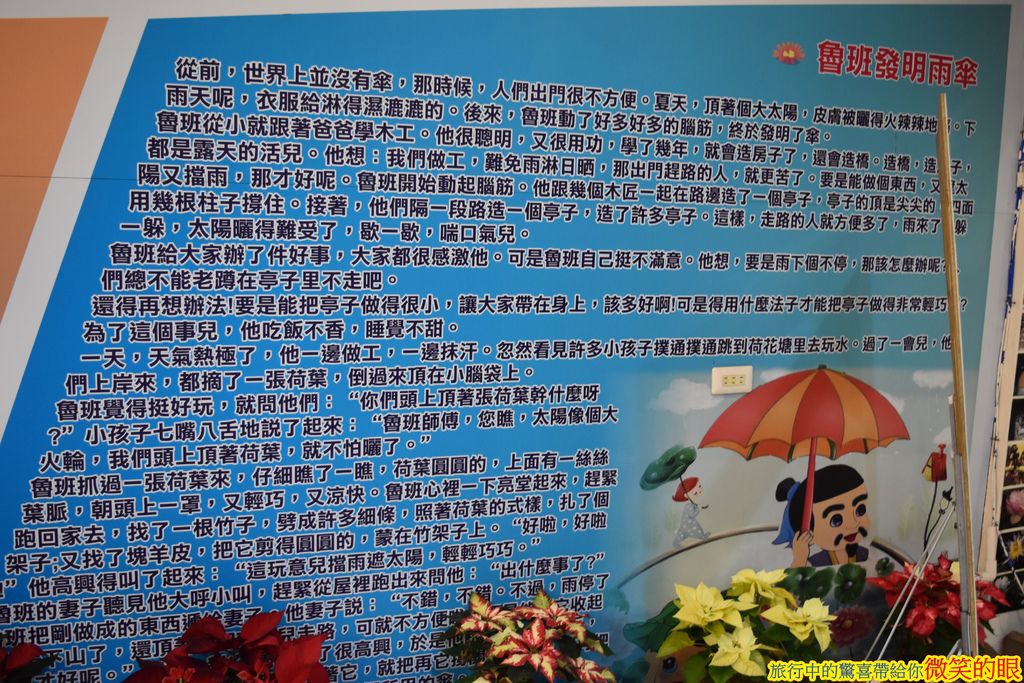 魯班發明雨傘
從前，世界上並沒有傘，那時候，人們出門很不方便。夏天，頂著個大太陽，皮膚被曬得火辣辣地 。下
雨天呢，衣服給淋得濕漉漉的。後來，魯班動了好多好多的腦筋，終於發明了傘。
魯班從小就跟著爸爸學木工。他很聰明，又很用功，學了幾年，就會造房子了，還會造橋。造橋，造 子，
都是露天的活兒。他想：我們做工，難免雨淋日晒，那出門趕路的人，就更苦了。要是能做個東西，又 太
陽又擋雨，那才好呢。魯班開始動起腦筋。他跟幾個木匠一起在路邊造了一個亭子，亭子的頂是尖尖的 四面
用幾根柱子撐住。接著，他們隔一段路造一個亭子，造了許多亭子。這樣，走路的人就方便多了，雨來了 躲
一躲，太陽曬得難受了，歇一歇，喘口氣兒。
魯班給大家辦了件好事，大家都很感激他。可是魯班自己挺不滿意。他想，要是雨下個不停，那該怎麼辦呢?人
們總不能老蹲在亭子里不走吧。
還得再想辦法!要是能把亭子做得很小，讓大家帶在身上，該多好啊!可是得用什麼法子才能把亭子做得非常輕巧 ?
為了這個事兒，他吃飯不香，睡覺不甜。
一天，天氣熱極了，他一邊做工，一邊抹汗。忽然看見許多小孩子撲通撲通跳到荷花塘里去玩水。過了一會兒，他
們上岸來，都摘了一張荷葉，倒過來頂在小腦袋上。
魯班覺得挺好玩，就問他們：“你們頭上頂著張荷葉幹什麼呀
?”小孩子七嘴八舌地說了起來：“魯班師傅，您瞧，太陽像個大
火輪，我們頭上頂著荷葉，就不怕曬了。”
魯班抓過一張荷葉來，仔細瞧了一瞧，荷葉圓圓的，上面有一絲絲
葉脈，朝頭上一罩，又輕巧，又涼快。魯班心裡一下亮堂起來，趕緊
跑回家去，找了一根竹子，劈成許多細條，照著荷葉的式樣，扎了個
架子;又找了塊羊皮，把它剪得圓圓的，蒙在竹架子上。“好啦，好啦
!”他高興得叫了起來：“這玩意兒擋雨遮太陽，輕輕巧巧。”
魯班的妻子聽見他大呼小叫，趕緊從屋裡跑出來問他：“出什麼事了?”
班把剛做成的東西遞給妻子，他妻子說：“不錯，不錯。不過，雨停了
下山了，還頂 兒走路，可就不方便 它收起
才好呢。” 了很高興，於是 把
著它，就把再它
旅行中的驚喜帶給你微笑的眼